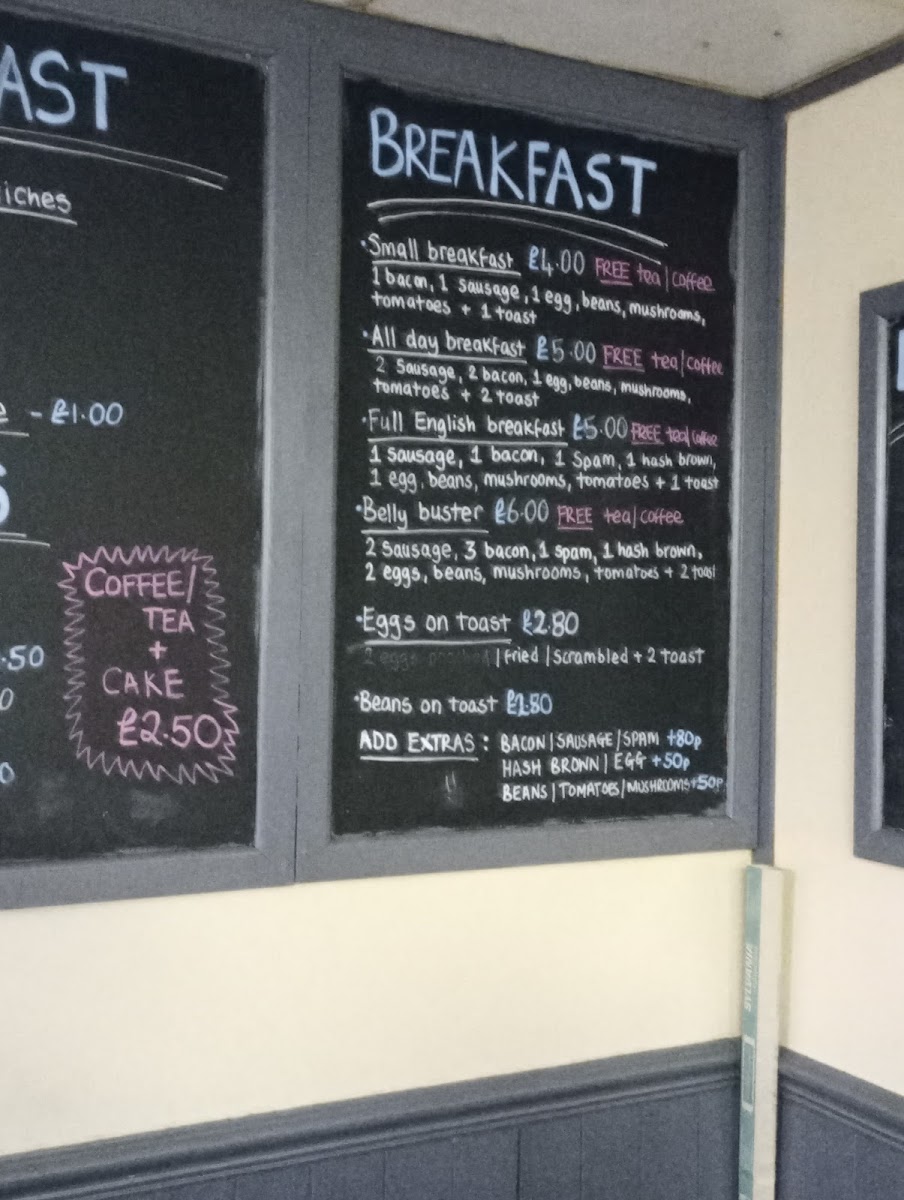 AST
iches
- £1.00
S
COFFEE/
TEA
+
CAKE
£2.50
.50
0
0
BREAKFAST
• Small breakfast £4.00 FREE tea/coffee
1 bacon, 1 sausage, 1 egg, beans, mushrooms,
tomatoes + 1 toast
• All day breakfast £5.00 FREE tea/coffee
2 Sausage, 2 bacon, 1 egg, beans, mushrooms,
tomatoes + 2 toast
• Full English breakfast £5.00 FREE tea/coffee
1 sausage, 1 bacon, 1 Spam, 1 hash brown,
1 egg, beans, mushrooms, tomatoes + 1 toast
• Belly buster £6.00 FREE tea/coffee
2 Sausage, 3 bacon, 1 spam, 1 hash brown,
2 eggs, beans, mushrooms, tomatoes + 2 toast
• Eggs on toast £2.80
2 eggs poached | Fried | Scrambled + 2 Toast
• Beans on toast £1.80
ADD EXTRAS : BACON | SAUSAGE / SPAM +80p
HASH BROWN | EGG +50p
BEANS | TOMATOES / MUSHROOMS +50p
SYLVANIA